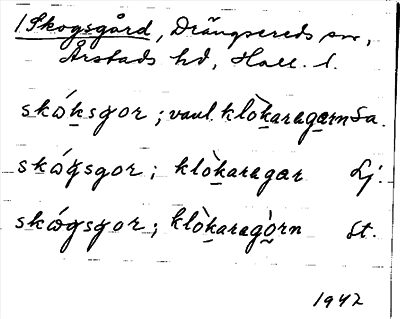 1 Skogsgård, Drängsereds sn,
Årstads hd, Hall. l.
skóksgor; vanl. klòkaragærn Sa.
skógsgor; klòkaragær Lj.
skógsgor; klòkaragòrn St.
1942